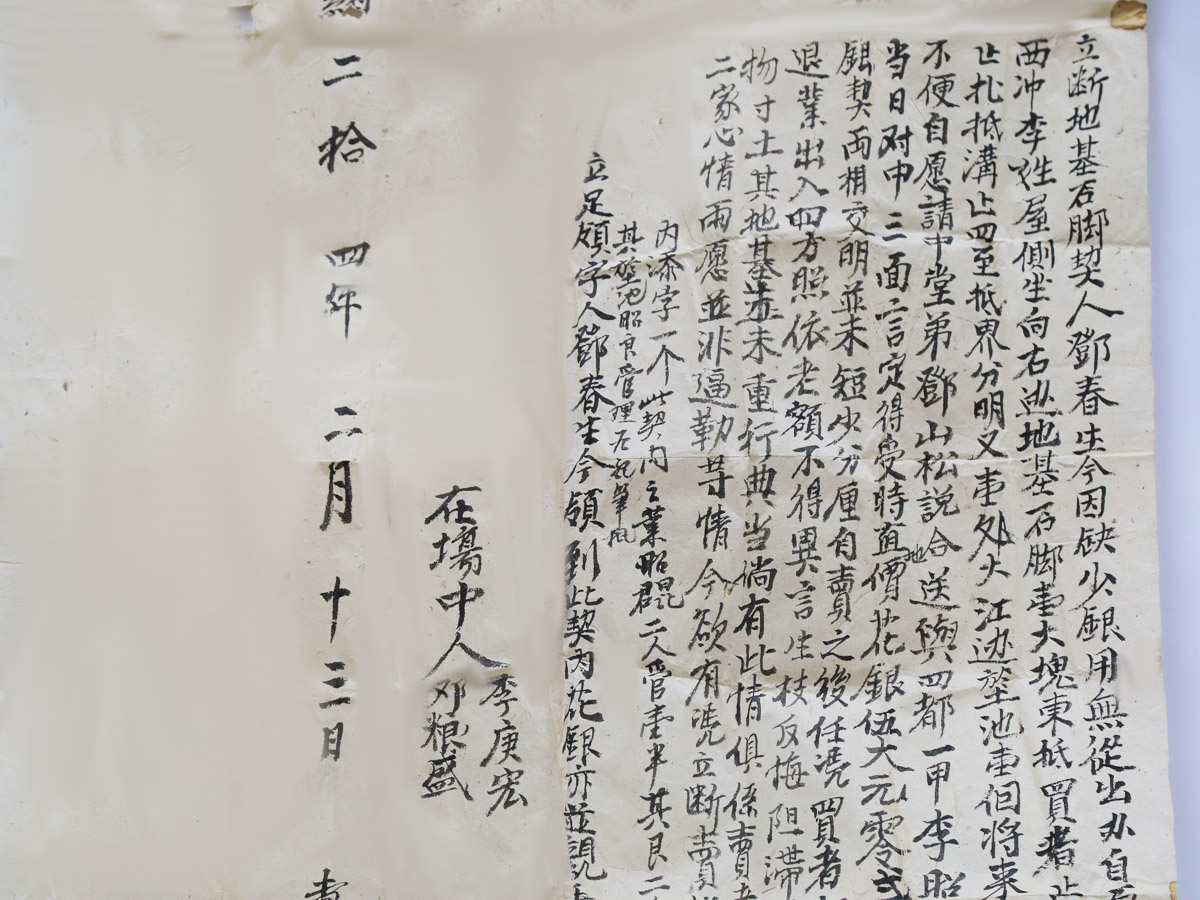 立断地基石脚契人鄧春生今因缺少銀用無從出办自
西冲李姓屋側坐向右边地基石脚壹大塊東抵買者止
止扎抵溝止四至抵界分明又壹处大江边塗池壹個将来
不便自愿請中堂弟鄧山松説合送與四都一甲李昭
当日对中三面言定得受時直地價花銀伍大元零弍
銀契両相交明並未短少分厘自賣之後任凴買者
退業出入四方照依老額不得異言生枝反悔阻滞
物寸土其地基並未重行典当倘有此情俱係賣者
二家心情両愿並非逼勒等情今欲有凴立断賣
内添字一个此契内之業昭崑昭二人管壹半其良二
其塗池昭良管理左記筆批
立足領字人鄧春生今領到此契内花銀亦並親
在場中人李庚宏
邓粮盛
二拾四年二月十三日